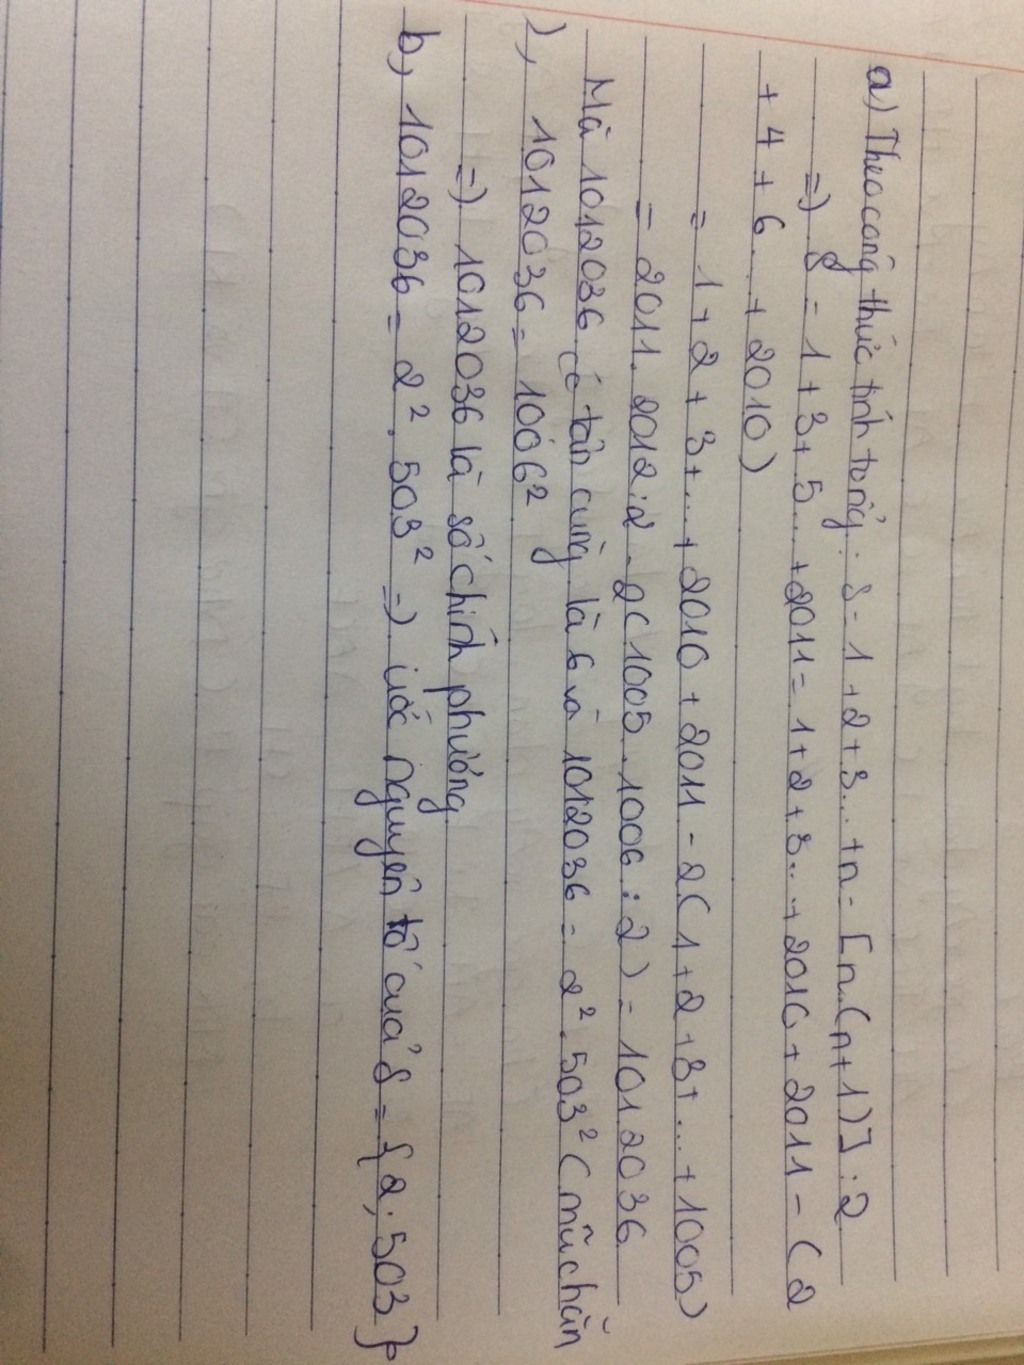 a) Theo công thức tính tổng: S = 1 + 2 + 3... + n = [n.(n+1)] : 2
=) S = 1 + 3 + 5... + 2011 = 1 + 2 + 3... + 2010 + 2011 - (2
+ 4 + 6... + 2010)
= 1 + 2 + 3 + ... + 2010 + 2011 - 2(1 + 2 + 3 + ... + 1005)
= 2011. 2012 : 2 - 2(1005. 1006 : 2) = 1012036
Mà 1012036 có tận cùng là 6 và 1012036 = 2². 503² (mũ chẵn
), 1012036 = 1006²
=) 1012036 là số chính phương
b, 1012036 = 2². 503² =) ước nguyên tố của S = {2; 503}